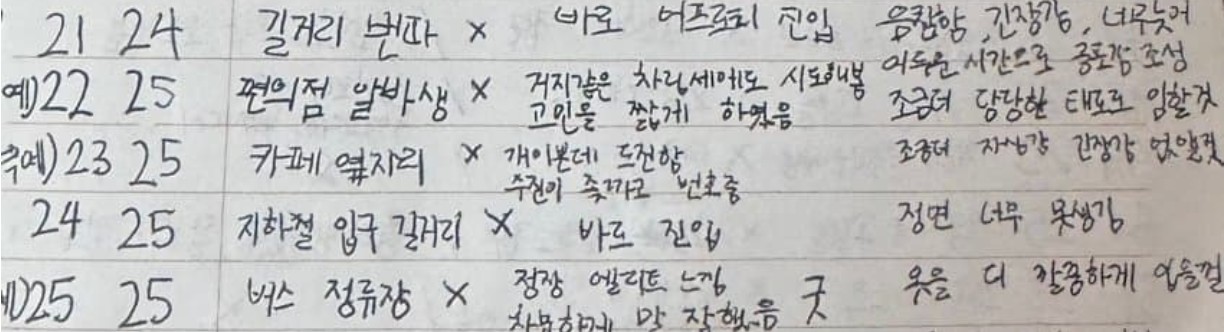 21 24 길거리 번따 × 바로 어프로치 진입 음침함, 긴장감, 너무늦어
어두운 시간으로 공포감 조성
예)22 25 편의점 알바생 × 거지같은 차림새에도 시도해봄
고민을 짧게 하였음 조금더 당당한 태도로 임할것
예)23 25 카페 옆자리 × 개이쁜데 도전함 조금더 자신감 긴장감 없앨것
주진이 쫒까고 번호줌
24 25 지하철 입구 길거리 × 바로 진입 정면 너무 못생김
25 25 버스 정류장 × 정장 엘리트 느낌 굿 옷을 더 깔쌈하게 입을껄
차분하게 말 잘했음